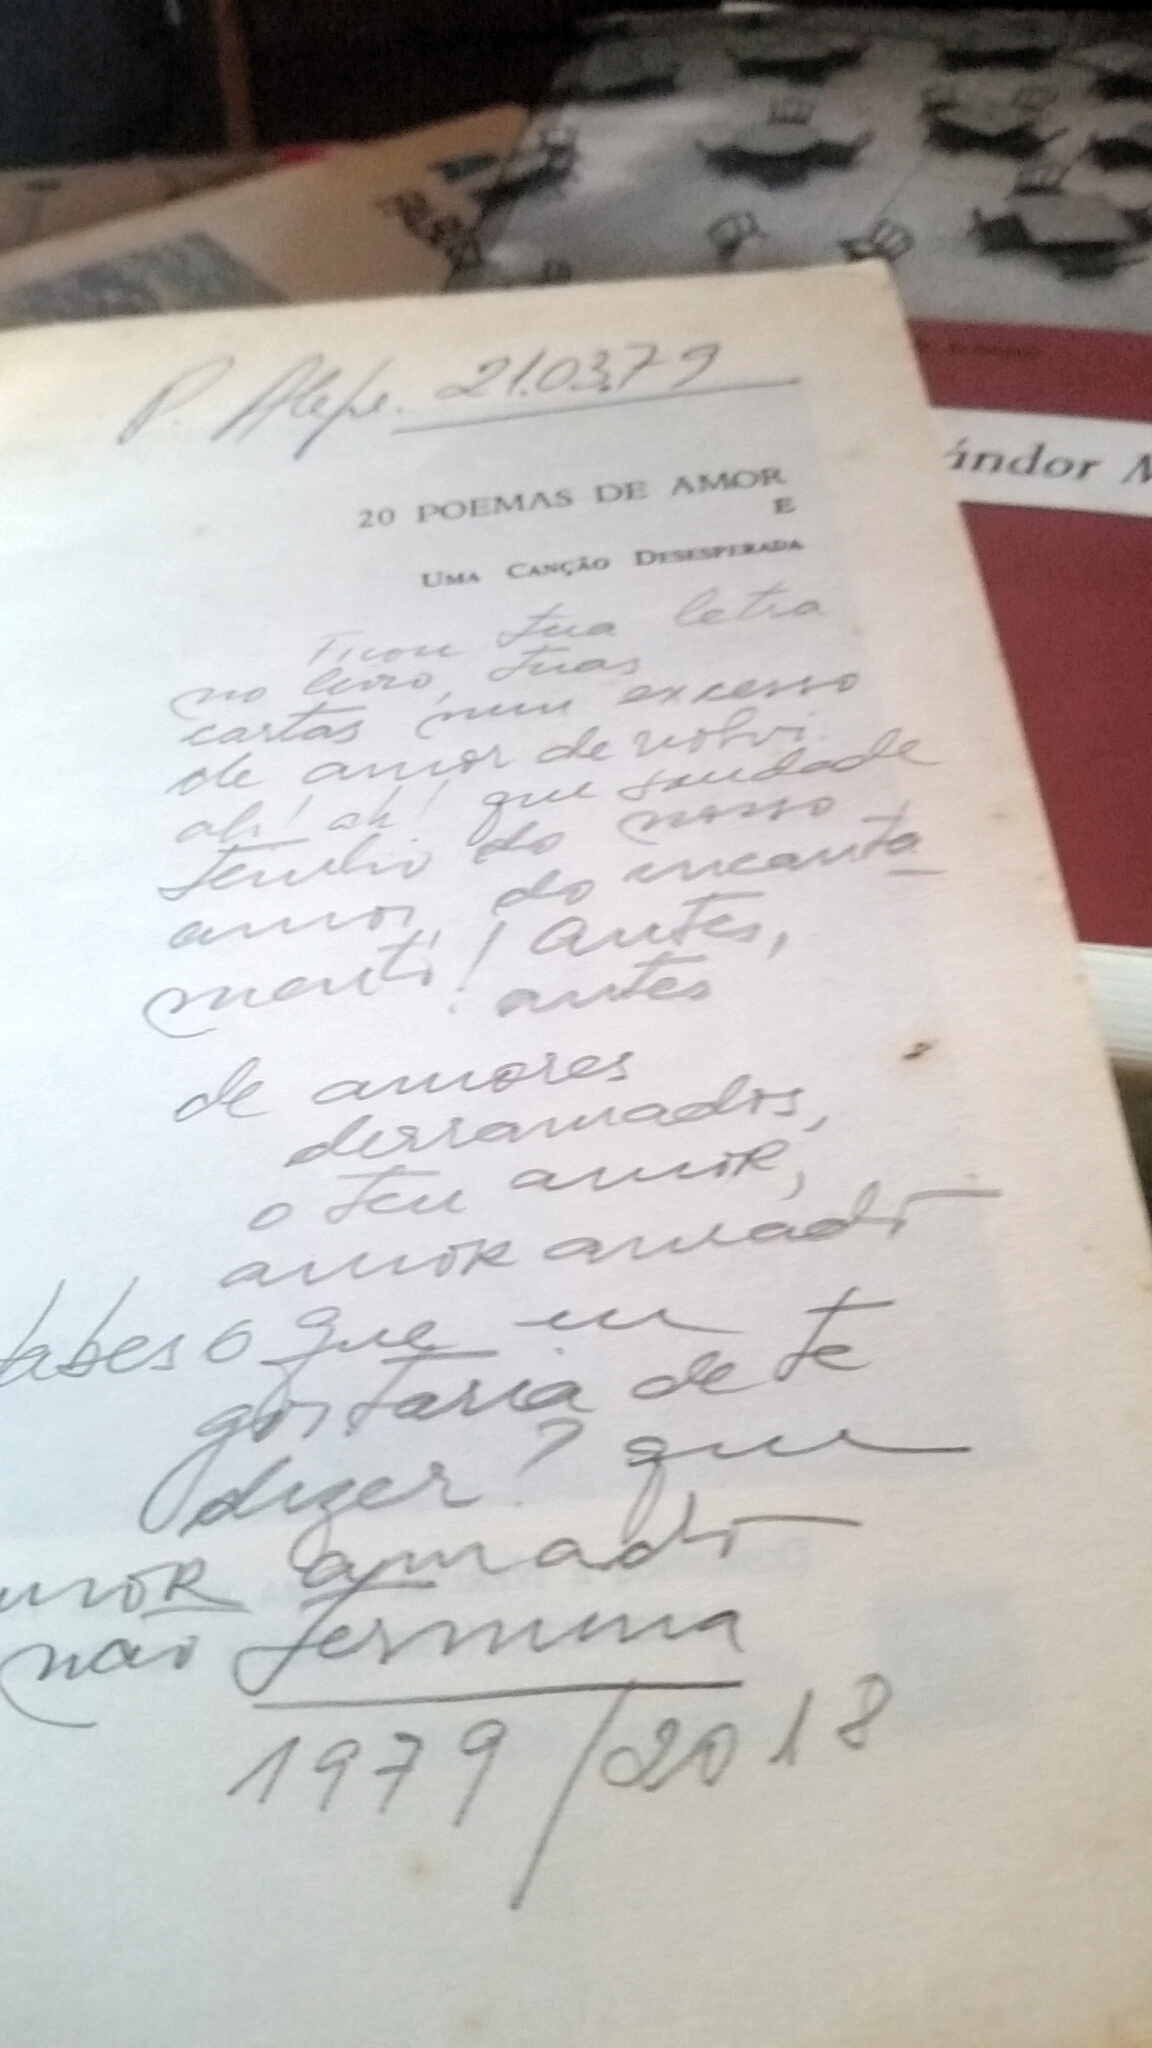 P. Alegre. 21.03.79
20 POEMAS DE AMOR
E
UMA CANÇÃO DESESPERADA
Ficou tua letra
no livro, tuas
cartas num excesso
de amor devolvi.
ah! ah! que saudade
tenho do nosso
amor, do encanta
mento! Antes,
antes
de amores
derramados,
o teu amor,
amor amado
sabes o que eu
gostaria de te
dizer? que
amor amado
não termina
1979/2018
ándor M